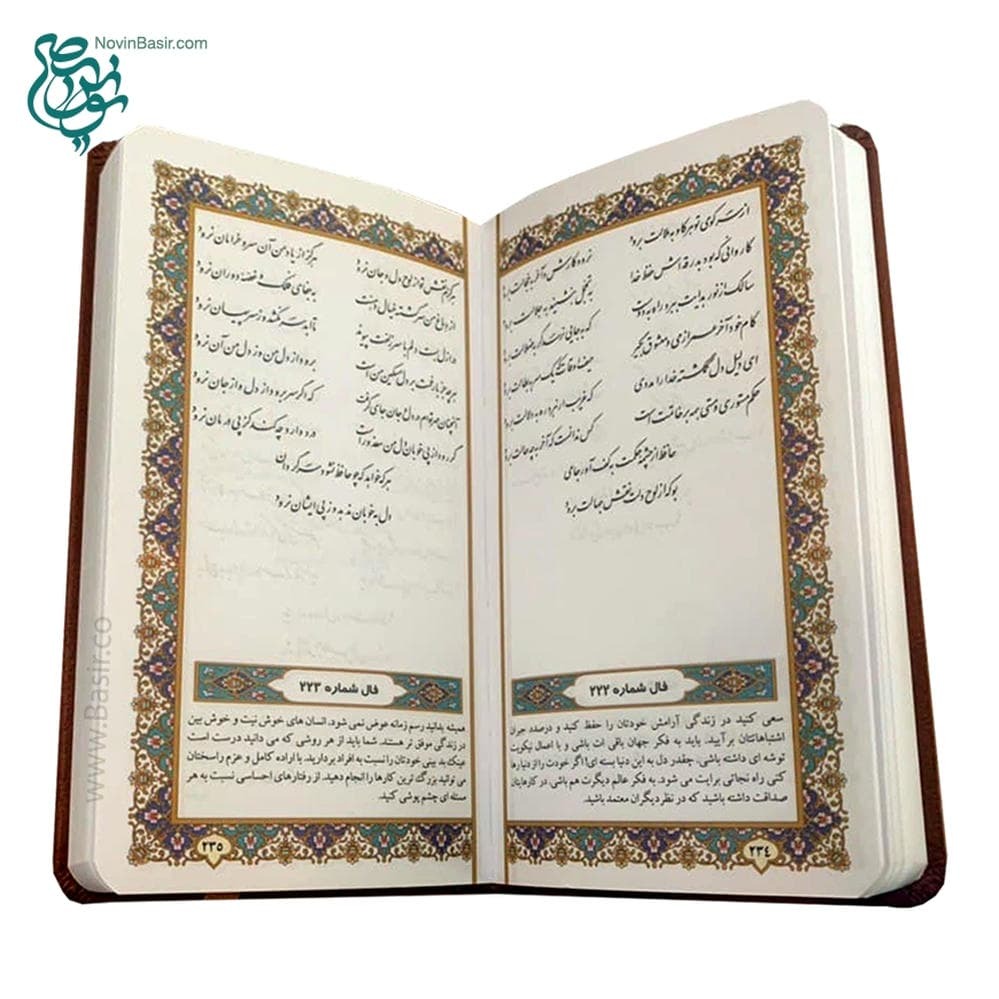 NovinBasir.com
از سر کوی تو هر کاو به ملالت برود نرود کارش و آخر به خجالت برود
کاروانی که بود بدرقه اش حفظ خدا به تجمل بنشیند به جلالت برود
سالک از نور هدایت ببرد راه به دوست که به جایی نرسد گر به ضلالت برود
کام خود آخر عمر از می و معشوق بگیر حیف اوقات که یک سر به بطالت برود
ای دلیل دل گمگشته خدا را مددی که غریب ار نبرد ره به دلالت برود
حکم مستوری و مستی همه بر خاتمت است کس ندانست که آخر به چه حالت برود
حافظ از چشمه حکمت به کف آور جامی
بو که از لوح دلت نقش جهالت برود
فال شماره ۲۲۲
سعی کنید در زندگی آرامش خودتان را حفظ کنید و درصدد جبران
اشتباهاتتان برآیید. باید به فکر جهان باقی ات باشی و با اعمال نیکویت
توشه ای داشته باشی. چقدر دل به این دنیا بسته ای! اگر خودت را از دنیا رها
کنی راه نجاتی برایت می شود. به فکر عالم دیگرت هم باشی. در کارهایتان
صداقت داشته باشید که در نظر دیگران معتمد باشید.
۲۳۴
هرگزم نقش تو از لوح دل و جان نرود هرگز از یاد من آن سرو خرامان نرود
از دماغ من سرگشته خیال دهنت به جفای فلک و غصه دوران نرود
در ازل بست دلم با سر زلفت پیوند تا ابد سر نکشد وز سر پیمان نرود
هر چه جز بار غمت بر دل مسکین من است برود از دل من وز دل من آن نرود
آنچنان مهر توام در دل و جان جای گرفت که اگر سر برود از دل و از جان نرود
گر رود از پی خوبان دل من معذور است درد دارد چه کند کز پی درمان نرود
هر که خواهد که چو حافظ نشود سرگردان
دل به خوبان ندهد وز پی ایشان نرود
فال شماره ۲۲۳
همیشه بدانید رسم زمانه عوض نمی شود. انسان های خوش نیت و خوش بین
در زندگی موفق تر هستند. شما باید از هر روشی که می دانید درست است
عینک بد بینی خودتان را نسبت به افراد بردارید. با اراده کامل و عزم راسختان
می توانید بزرگ ترین کارها را انجام دهید. از رفتارهای احساسی نسبت به هر
مسئله ای چشم پوشی کنید.
۲۳۵
www.Basir.co